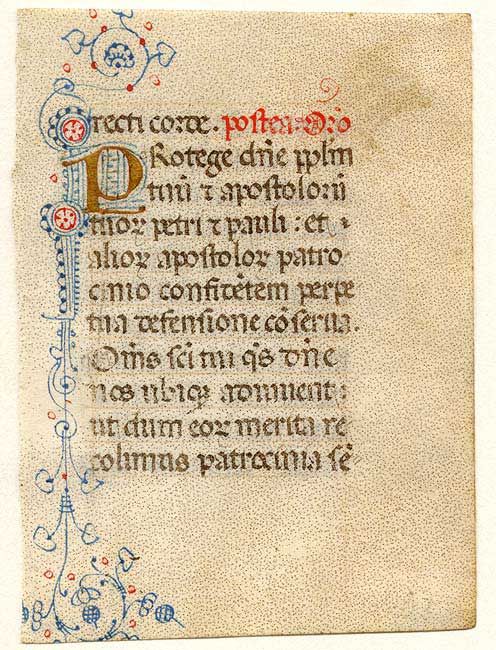 recti corde. postea. Oro
PRotege dñe pplm
tuū ⁊ apostoloꝝ
tuoꝝ petri ⁊ pauli : et
alioꝝ apostoloꝝ patro
cinio confidētem perpe
tua defensione cōserua.
Oms sci tui qs dñe
nos ubiqꝫ adiuuent :
ut dum eoꝝ merita re
colimus patrocinia sē